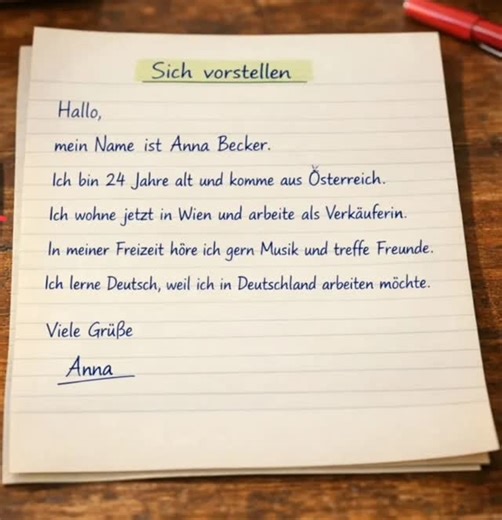 Sich vorstellen
Hallo,
mein Name ist Anna Becker.
Ich bin 24 Jahre alt und komme aus Österreich.
Ich wohne jetzt in Wien und arbeite als Verkäuferin.
In meiner Freizeit höre ich gern Musik und treffe Freunde.
Ich lerne Deutsch, weil ich in Deutschland arbeiten möchte.
Viele Grüße
Anna